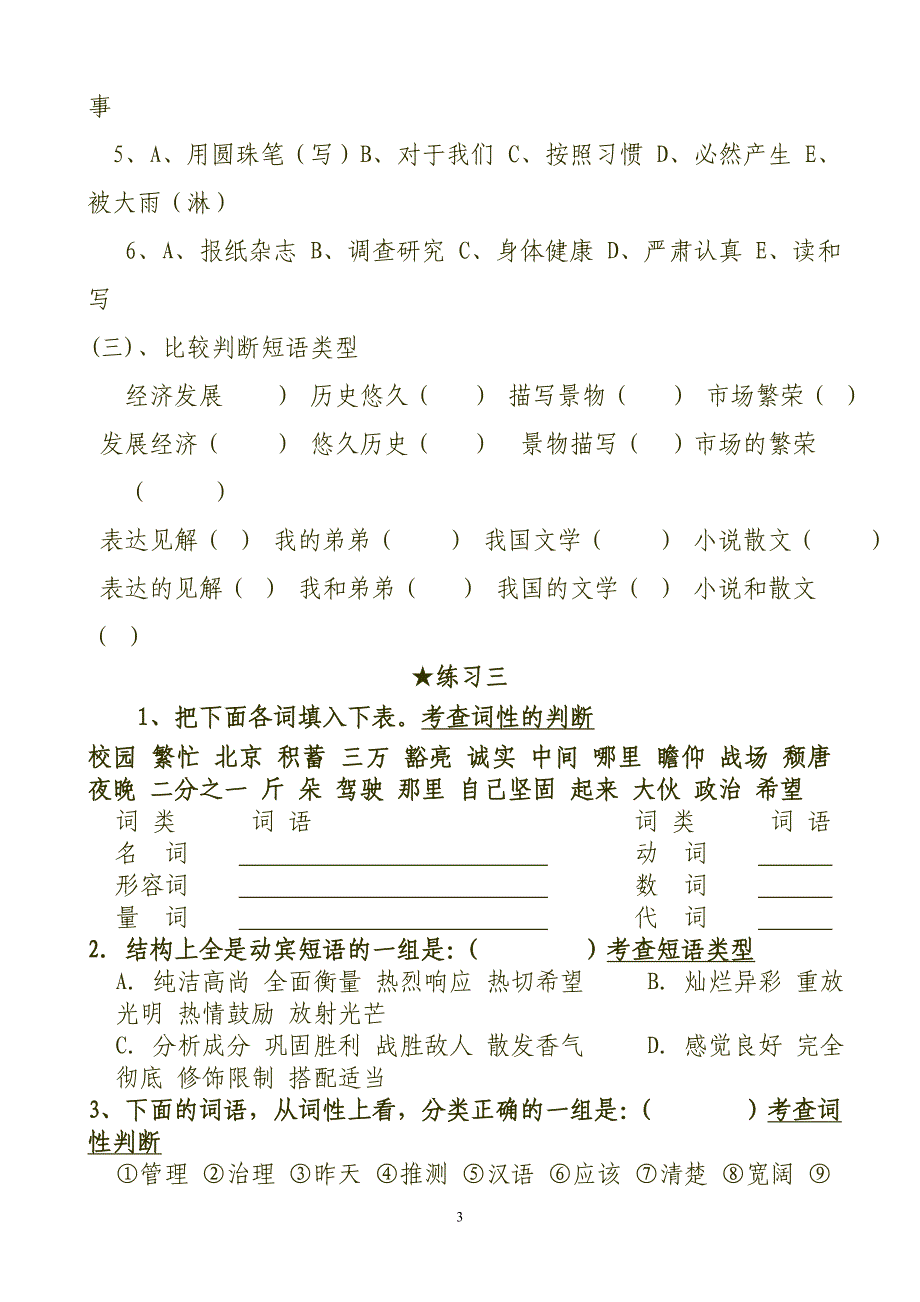 事
5、A、用圆珠笔（写）B、对于我们 C、按照习惯 D、必然产生 E、
被大雨（淋）
6、A、报纸杂志 B、调查研究 C、身体健康 D、严肃认真 E、读和
写
(三)、比较判断短语类型
经济发展 ） 历史悠久（ ） 描写景物（ ） 市场繁荣（ ）
发展经济（ ） 悠久历史（ ） 景物描写（ ）市场的繁荣
（ ）
表达见解（ ） 我的弟弟（ ） 我国文学（ ） 小说散文（ ）
表达的见解（ ） 我和弟弟（ ） 我国的文学（ ） 小说和散文
（ ）
★练习三
1、把下面各词填入下表。考查词性的判断
校园 繁忙 北京 积蓄 三万 豁亮 诚实 中间 哪里 瞻仰 战场 颓唐
夜晚 二分之一 斤 朵 驾驶 那里 自己坚固 起来 大伙 政治 希望
词 类 词 语 词 类 词 语
名 词 ＿＿＿＿ 动 词 ＿＿＿＿
形容词 ＿＿＿＿ 数 词 ＿＿＿＿
量 词 ＿＿＿＿ 代 词 ＿＿＿＿
2. 结构上全是动宾短语的一组是：（ ）考查短语类型
A. 纯洁高尚 全面衡量 热烈响应 热切希望 B. 灿烂异彩 重放
光明 热情鼓励 放射光芒
C. 分析成分 巩固胜利 战胜敌人 散发香气 D. 感觉良好 完全
彻底 修饰限制 搭配适当
3、下面的词语，从词性上看，分类正确的一组是：（ ）考查词
性判断
①管理 ②治理 ③昨天 ④推测 ⑤汉语 ⑥应该 ⑦清楚 ⑧宽阔 ⑨
3